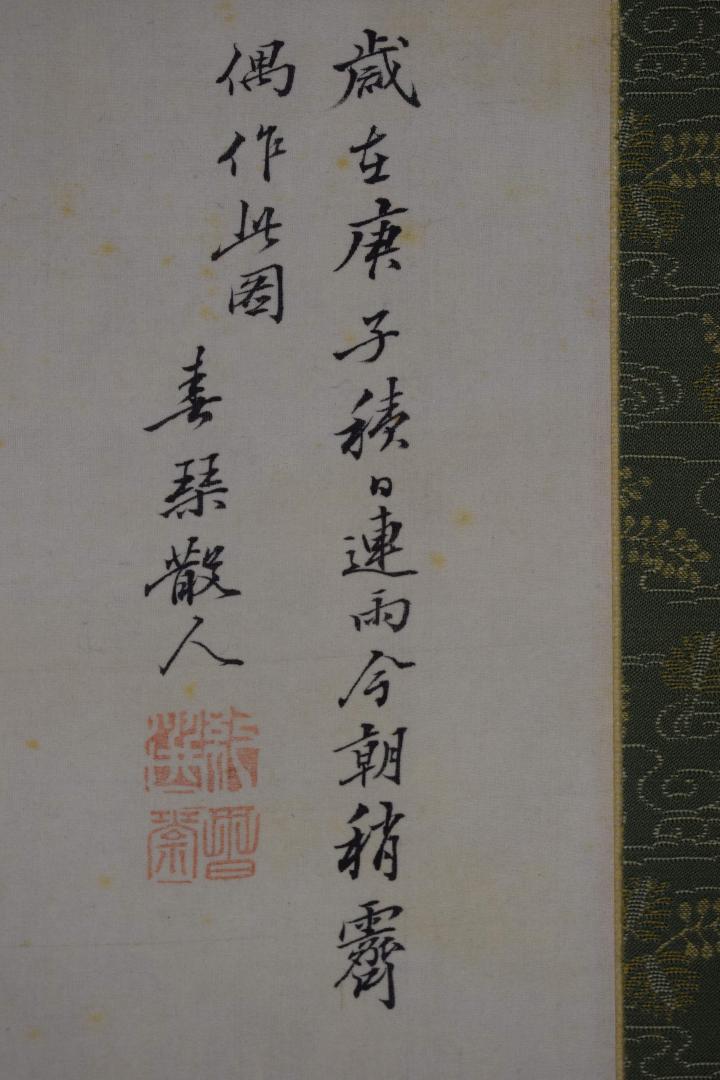 歳在庚子積日連雨今朝稍霽
偶作此圖
春琴散人